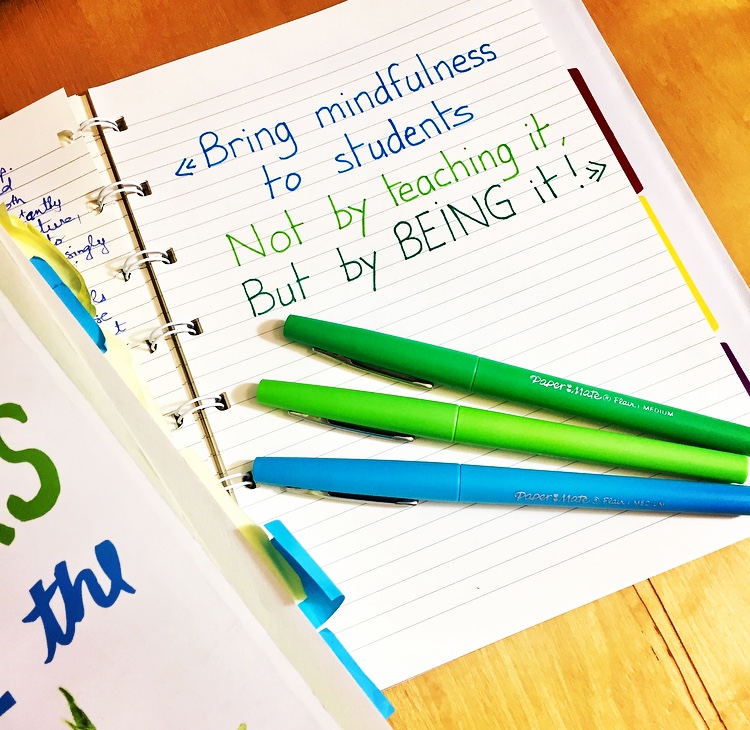 «Bring mindfulness
to students
Not by teaching it,
But by BEiNG it!»
Paper Mate ® Flair, MEDIUM
Paper Mate ® Flair, MEDIUM
tantly
singly
the